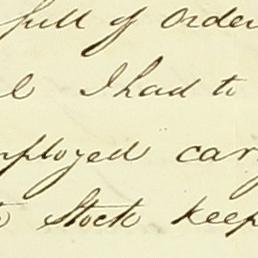 full of order
I had to
mployed car
Stock keep